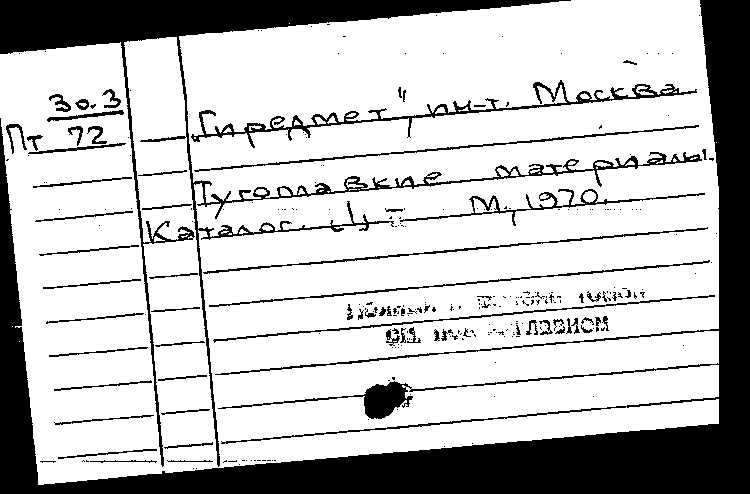 30.3
Пт 72
„Гиредмет“, ин-т. Москва
Тугоплавкие материалы.
Каталог. М., 1970.
главном